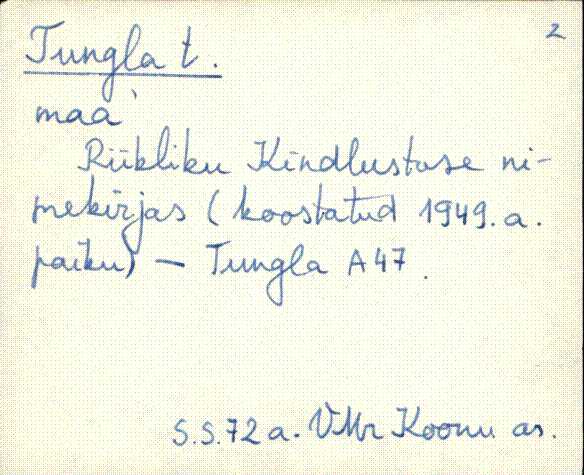 2
Tungla t.
maa
Riikliku Kindlustuse ni-
mekirjas (koostatud 1949. a.
paiku) — Tungla A47.
S.S. 72 a. VMr Koonu as.